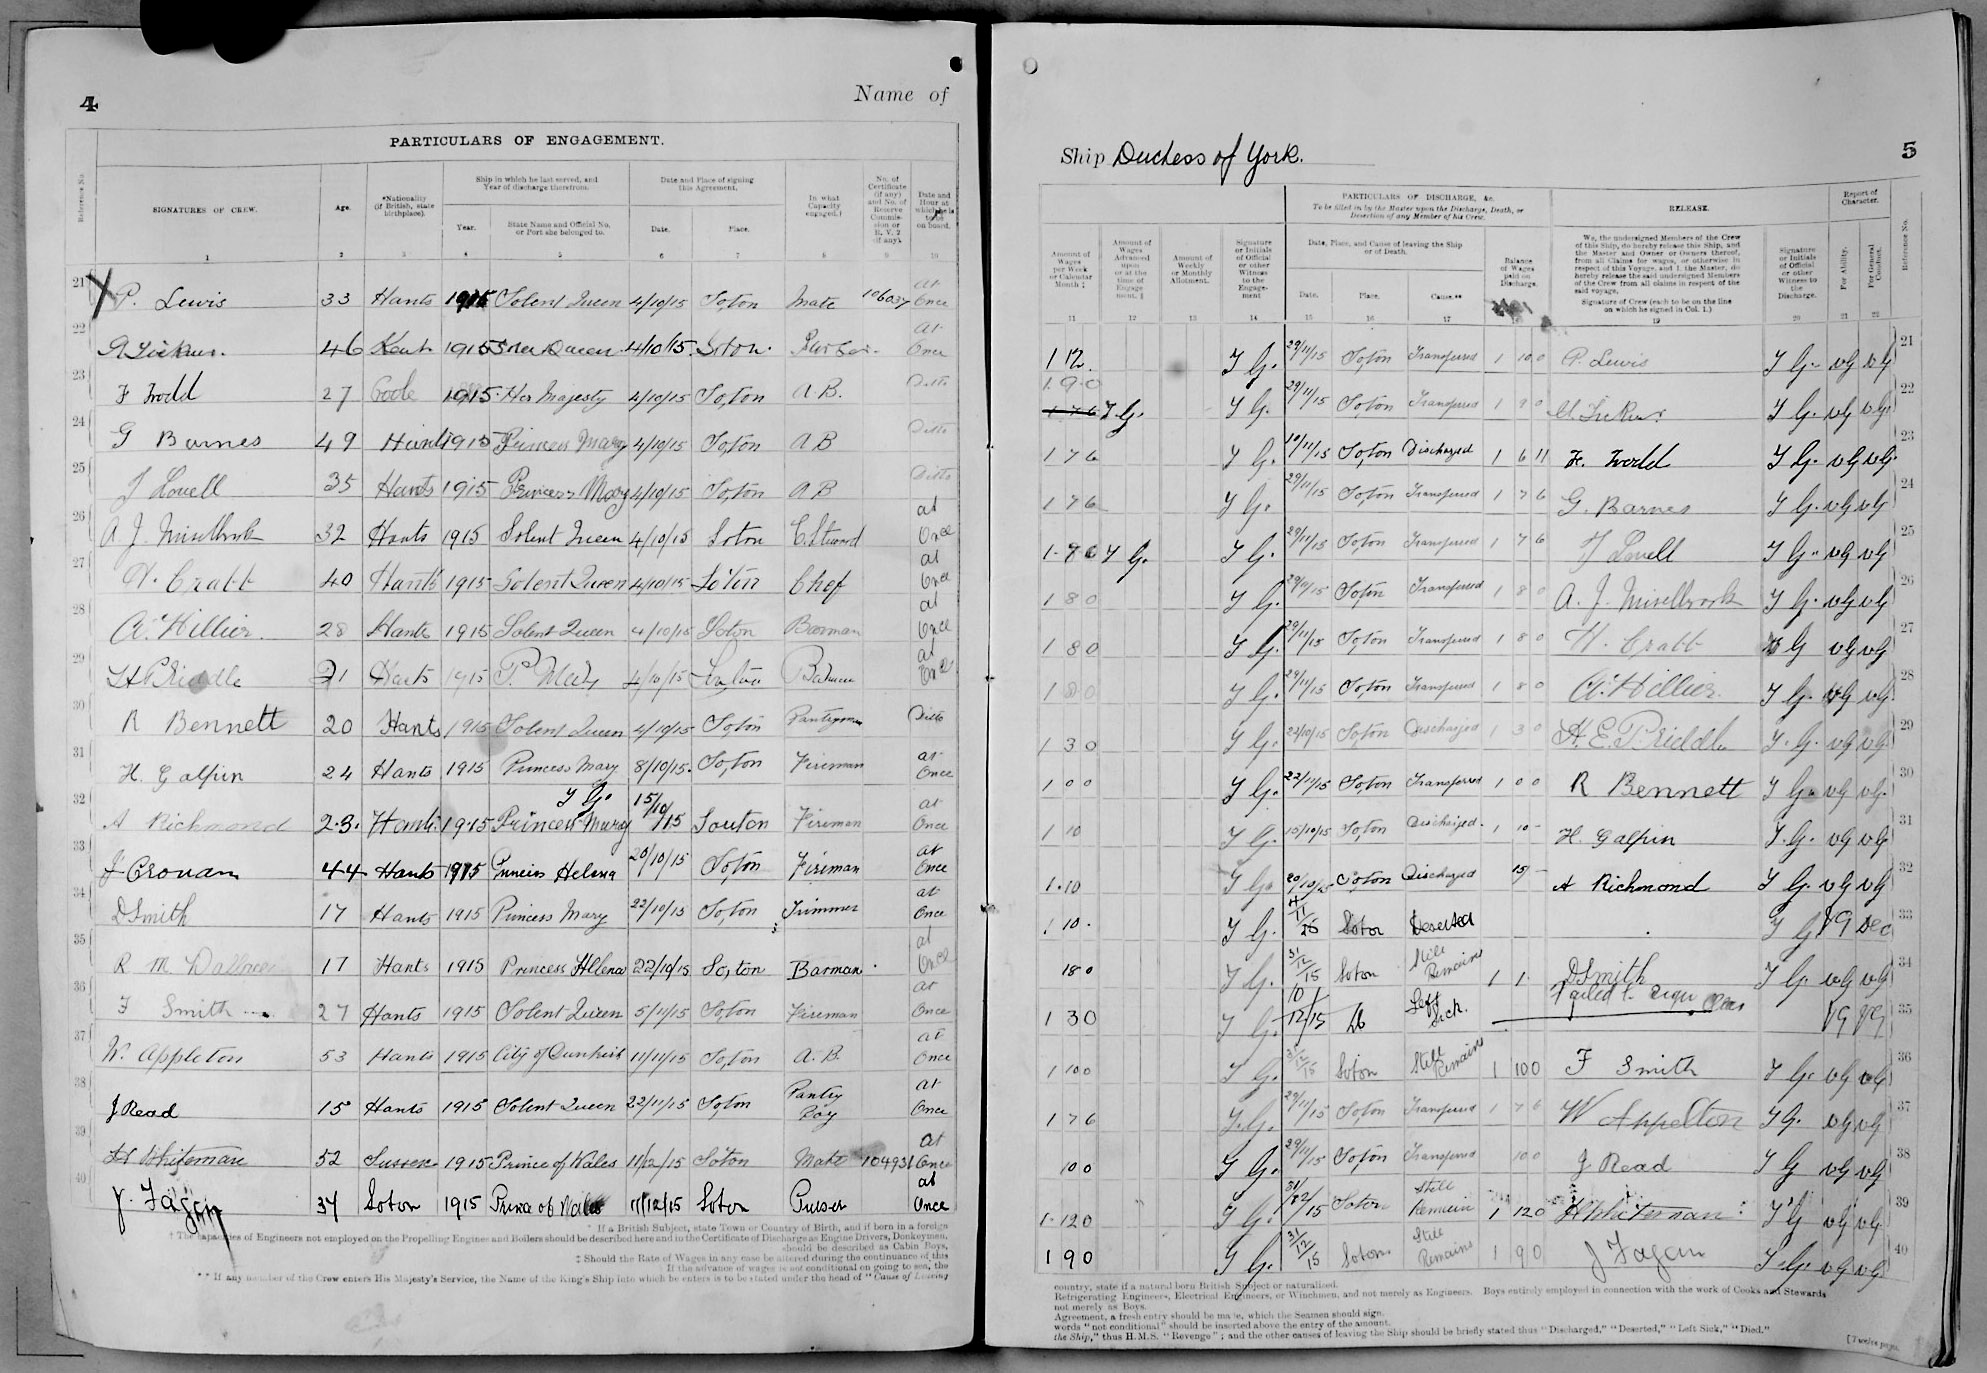 4
Name of
PARTICULARS OF ENGAGEMENT.
Reference No.
SIGNATURES OF CREW.
Age.
*Nationality (If British, state birthplace).
Ship in which he last served, and Year of discharge therefrom.
Year.
State Name and Official No. or Port she belonged to.
Date and Place of signing this Agreement.
Date.
Place.
In what Capacity engaged.†
No. of Certificate (if any) and No. of Reserve Commission or R. V. 2 (if any).
Date and Hour at which he is to be on board.
1 2 3 4 5 6 7 8 9 10
21 P. Lewis 33 Hants 1915 Solent Queen 4/10/15 Soton Mate 106037 at Once
22 46 Kent 1915 Queen 4/10/15 Soton at Once
23 F Trodd 27 Poole 1915 Her Majesty 4/10/15 Soton A.B. Ditto
24 G Barnes 49 Hants 1915 Princess Mary 4/10/15 Soton A B Ditto
25 J Lovell 35 Hants 1915 Princess Mary 4/10/15 Soton A B Ditto
26 A. J. Miselbrook 32 Hants 1915 Solent Queen 4/10/15 Soton C. Steward at Once
27 W. Crabb 40 Hants 1915 Solent Queen 4/10/15 Soton Chef at Once
28 A. Hillier 28 Hants 1915 Solent Queen 4/10/15 Soton Barman at Once
29 H E Priddle 21 Hants 1915 P. Mary 4/10/15 Barman at Once
30 R Bennett 20 Hants 1915 Solent Queen 4/10/15 Soton Pantryman Ditto
31 H. Galpin 24 Hants 1915 Princess Mary 8/10/15 Soton Fireman at Once
32 A Richmond 23 Hants 1915 Princess Mary 15/10/15 Souton Fireman at Once
33 J Cronan 44 Hants 1915 Princess Helena 20/10/15 Soton Fireman at Once
34 D Smith 17 Hants 1915 Princess Mary 22/10/15 Soton Trimmer at Once
35 R M 17 Hants 1915 Princess Helena 22/10/15 Soton Barman at Once
36 F Smith 27 Hants 1915 Solent Queen 5/11/15 Soton Fireman at Once
37 W. Appleton 53 Hants 1915 City of Dunkirk 11/11/15 Soton A.B. at Once
38 J Read 15 Hants 1915 Solent Queen 22/11/15 Soton Pantry Boy at Once
39 H Whiteman 52 Sussex 1915 Prince of Wales 11/12/15 Soton Mate 104931 at Once
40 J. Fagan 37 Soton 1915 Prince of Wales 11/12/15 Soton Purser at Once
* If a British Subject, state Town or Country of Birth, and if born in a foreign
† The capacities of Engineers not employed on the Propelling Engines and Boilers should be described here and in the Certificate of Discharge as Engine Drivers, Donkeymen,
should be described as Cabin Boys,
‡ Should the Rate of Wages in any case be altered during the continuance of this
§ If the advance of wages is not conditional on going to sea, the
** If any member of the Crew enters His Majesty's Service, the Name of the King's Ship into which he enters is to be stated under the head of "Cause of Leaving
Ship Duchess of York.
5
PARTICULARS OF DISCHARGE, &c.
To be filled in by the Master upon the Discharge, Death, or Desertion of any Member of his Crew.
RELEASE.
Report of Character.
Amount of Wages per Week or Calendar Month ‡
Amount of Wages Advanced upon or at the time of Engagement. §
Amount of Weekly or Monthly Allotment.
Signature or Initials of Official or other Witness to the Engagement
Date, Place, and Cause of leaving the Ship or of Death.
Date.
Place.
Cause.**
Balance of Wages paid on Discharge.
We, the undersigned Members of the Crew of this Ship, do hereby release this Ship, and the Master and Owner or Owners thereof, from all Claims for wages, or otherwise in respect of this Voyage, and I, the Master, do hereby release the said undersigned Members of the Crew from all claims in respect of the said voyage.
Signature of Crew (each to be on the line on which he signed in Col. 1.)
Signature or Initials of Official or other Witness to the Discharge.
For Ability.
For General Conduct.
Reference No.
11 12 13 14 15 16 17 19 20 21 22
1 12. 29/11/15 Soton Transferred 1 10 0 P. Lewis VG VG 21
1.9.0 29/11/15 Soton Transferred 1 9 0 VG VG 22
1 7 6 10/11/15 Soton Discharged 1 6 11 F. Trodd VG VG 23
1 7 6 29/11/15 Soton Transferred 1 7 6 G. Barnes VG VG 24
1.8.0 29/11/15 Soton Transferred 1 7 6 J Lovell VG VG 25
1 8 0 29/11/15 Soton Transferred 1 8 0 A. J. Miselbrook VG VG 26
1 8 0 29/11/15 Soton Transferred 1 8 0 W. Crabb VG VG 27
1 8 0 29/11/15 Soton Transferred 1 8 0 A. Hillier VG VG 28
1 3 0 22/10/15 Soton Discharged 1 3 0 H. E. Priddle VG VG 29
1 0 0 22/11/15 Soton Transferred 1 0 0 R Bennett VG VG 30
1 10 15/10/15 Soton Discharged 1 10 - H. Galpin VG VG 31
1.10 20/10/15 Soton Discharged 15 - A Richmond VG VG 32
1 10. 4/11/15 Soton Deserted VG Dec 33
1 8 0 31/12/15 Soton Still Remains 1 1 D Smith VG VG 34
1 3 0 10/12/15 Do Left Sick. Failed to sign VG VG 35
1 10 0 31/12/15 Soton Still Remains 1 10 0 F Smith VG VG 36
1 7 6 29/11/15 Soton Transferred 1 7 6 W Appelton VG VG 37
10 0 29/11/15 Soton Transferred 10 0 J Read VG VG 38
1.12 0 31/12/15 Soton Still Remain 1 12 0 H Whiteman VG VG 39
1 9 0 31/12/15 Soton Still Remains 1 9 0 J Fagan VG VG 40
country, state if a natural born British Subject or naturalized.
Refrigerating Engineers, Electrical Engineers, or Winchmen, and not merely as Engineers. Boys entirely employed in connection with the work of Cooks and Stewards
not merely as Boys.
Agreement, a fresh entry should be made, which the Seamen should sign.
words "not conditional" should be inserted above the entry of the amount.
the Ship," thus H.M.S. "Revenge"; and the other causes of leaving the Ship should be briefly stated thus "Discharged," "Deserted," "Left Sick," "Died."